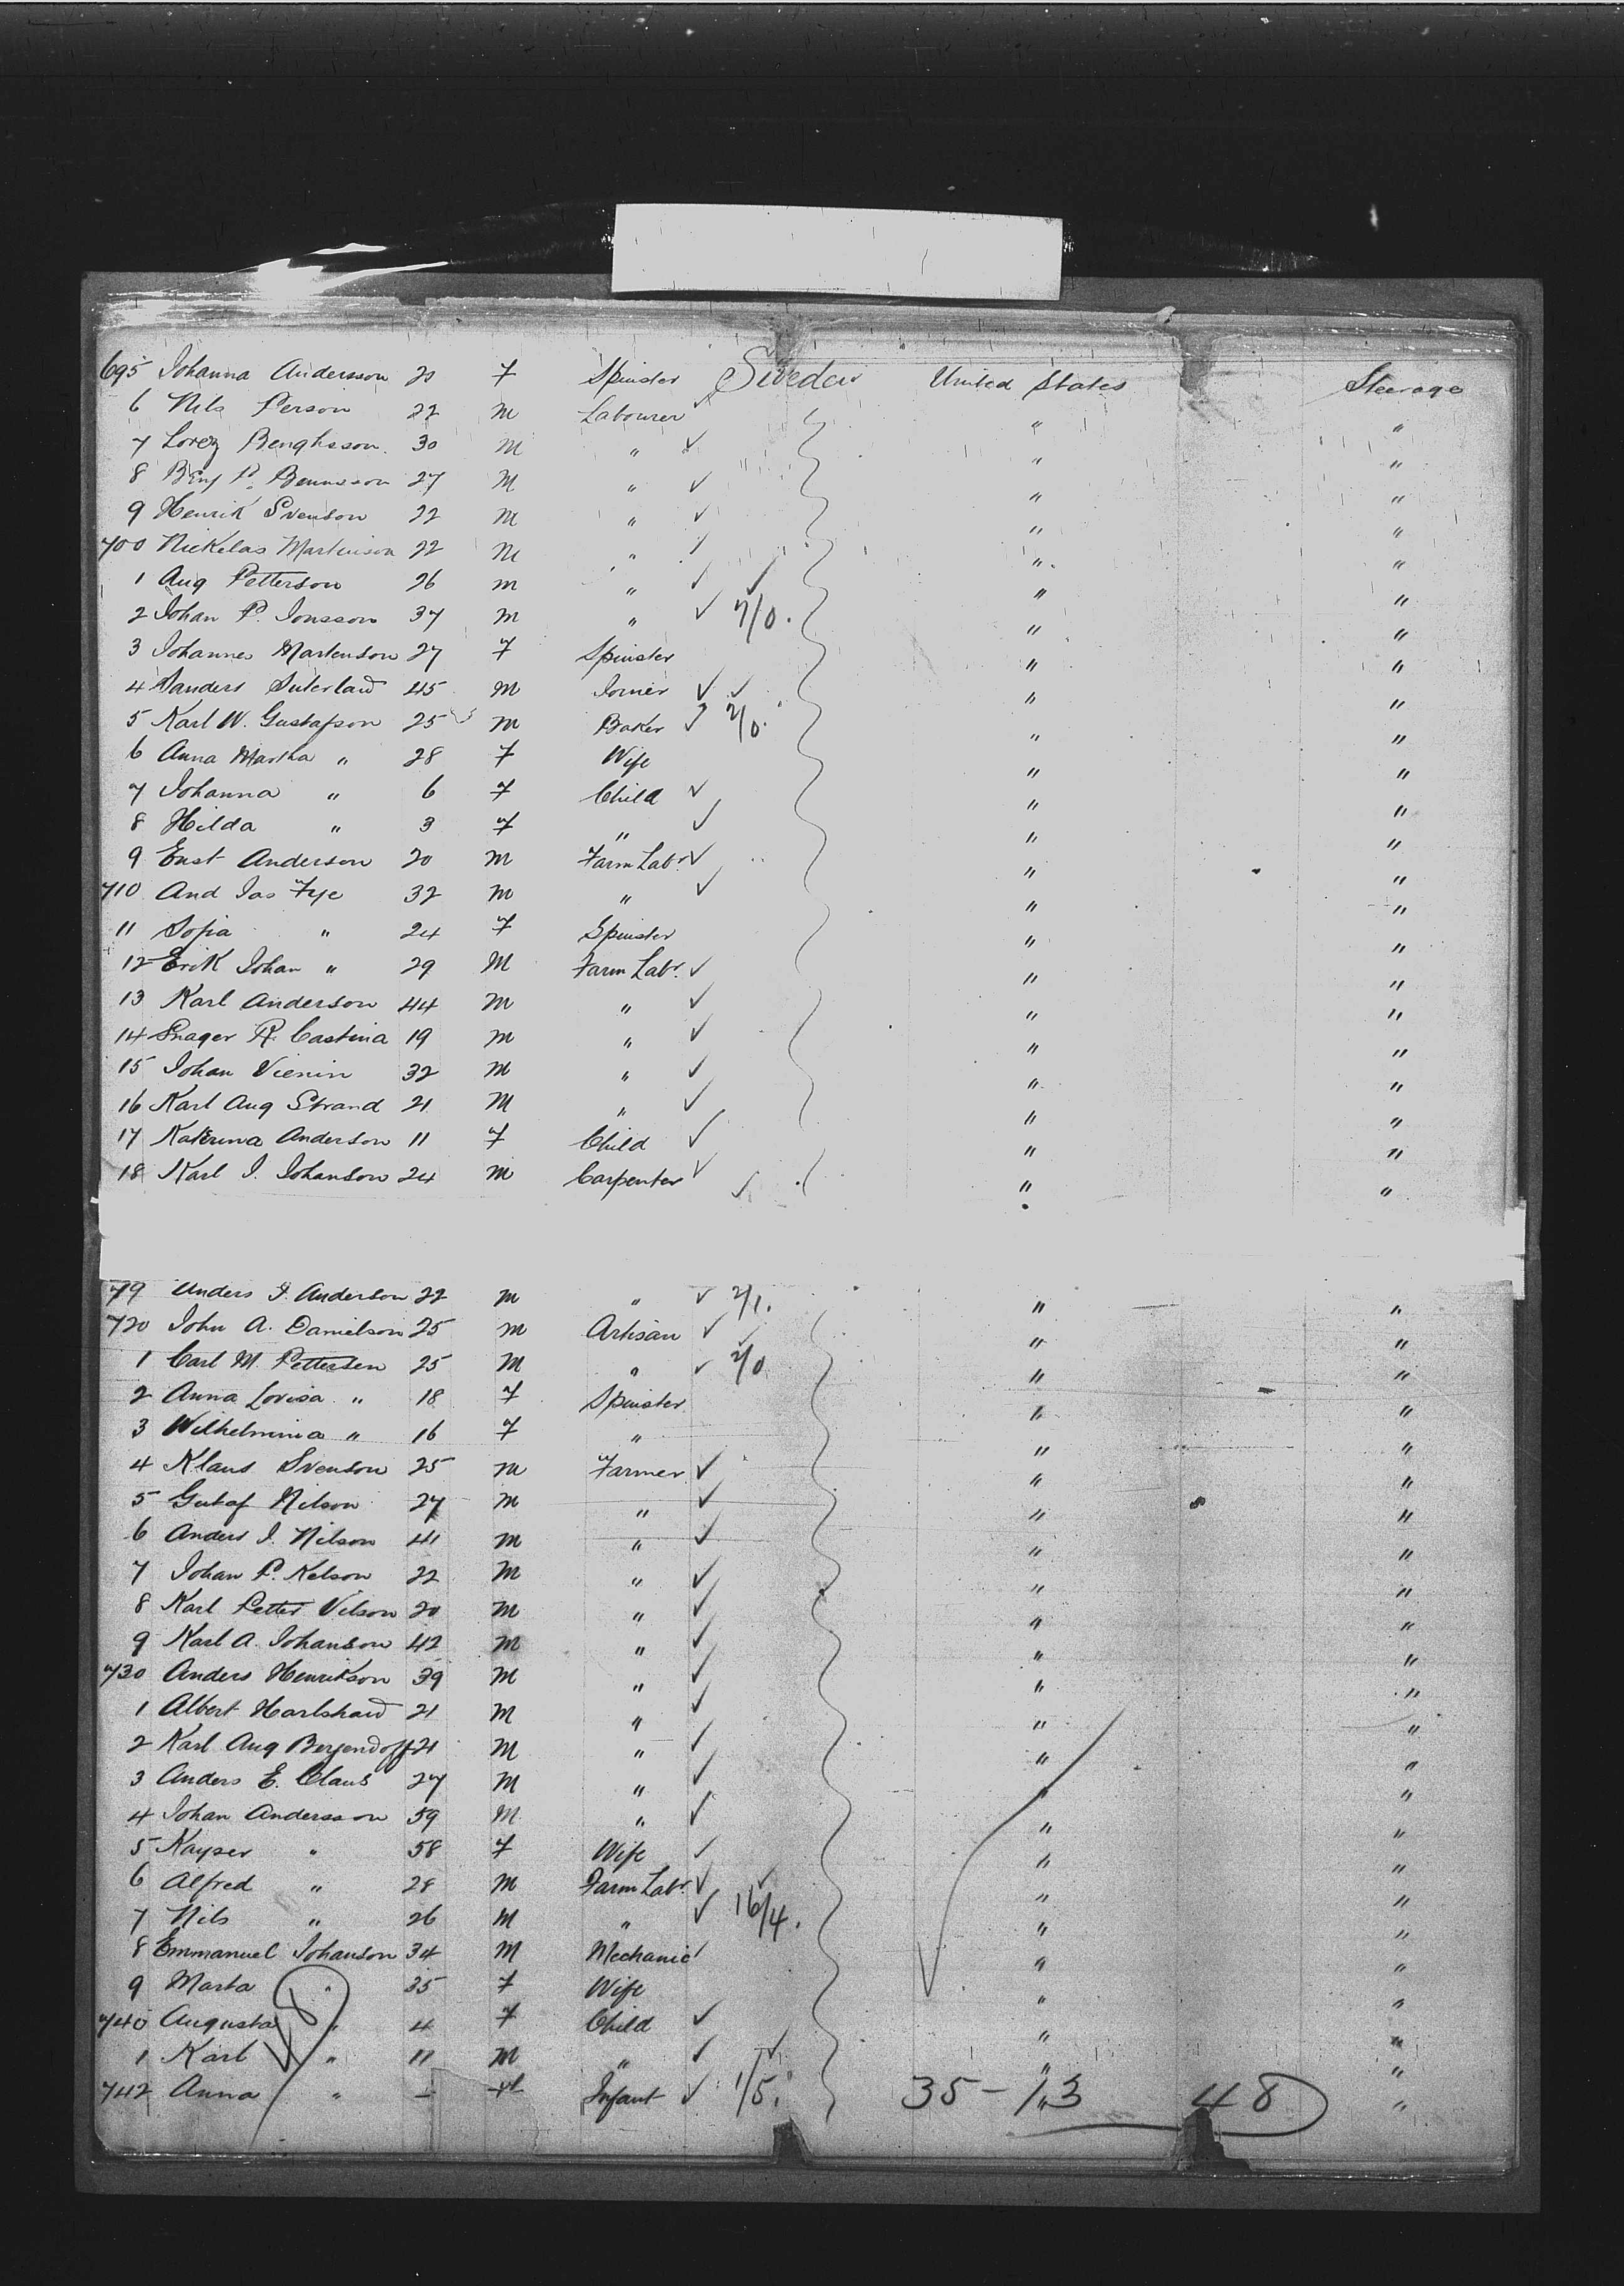 695 Johanna Andersson 20 F Spinster Sweden United States Steerage
6 Nils Person 22 M Labourer " "
7 Lorez Benghsson 30 M " " "
8 Benj P. Bennsson 27 M " " "
9 Henrik Svenson 22 M " " "
700 Nickelas Martinson 22 M " " "
1 Aug Petterson 26 m " " "
2 Johan P. Jonsson 37 m " 7/0. " "
3 Johannes Martenson 27 F Spinster " "
4 Sanders Suterlaw 45 m Joiner " "
5 Karl W. Gustafson 25 m Baker 2/0. " "
6 Anna Martha " 28 F Wife " "
7 Johanna " 6 F Child " "
8 Hilda " 3 F " " "
9 Enst Anderson 20 m Farm Labr. " "
710 And Jas Fye 32 m " " "
11 Sofia " 24 F Spinster " "
12 Erik Johan " 29 M Farm Labr. " "
13 Karl Anderson 44 m " " "
14 Snager R. Castina 19 m " " "
15 Johan Vienin 32 m " " "
16 Karl Aug Strand 21 M " " "
17 Katrina Anderson 11 F Child " "
18 Karl J. Johanson 24 m Carpenter " "
719 Anders J. Anderson 22 m " 2/1. " "
720 John A. Danielson 25 m Artisan " "
1 Carl M. Pettersen 25 M " 2/0 " "
2 Anna Lovisa " 18 F Spinster " "
3 Wilhelminia " 16 F " " "
4 Klaus Svenson 25 m Farmer " "
5 Gustaf Nilson 27 m " " "
6 Anders J. Nilson 41 m " " "
7 Johan P. Kelson 22 m " " "
8 Karl Petter Vilson 20 m " " "
9 Karl A. Johanson 42 m " " "
730 Anders Henrikson 39 M " " "
1 Albert Harlshaw 21 M " " "
2 Karl Aug Bergendoff 21 M " " "
3 Anders E. Claus 27 M " " "
4 Johan Andersson 59 M " " "
5 Kayser " 58 F Wife " "
6 Alfred " 28 M Farm Labr. " "
7 Nils " 26 M " 16/4. " "
8 Emmanuel Johanson 34 M Mechanic " "
9 Marta " 35 F Wife " "
740 Augusta " 4 F Child " "
1 Karl " 11 M " " "
742 Anna " - F Infant 1/5. 35-13 " 48 "